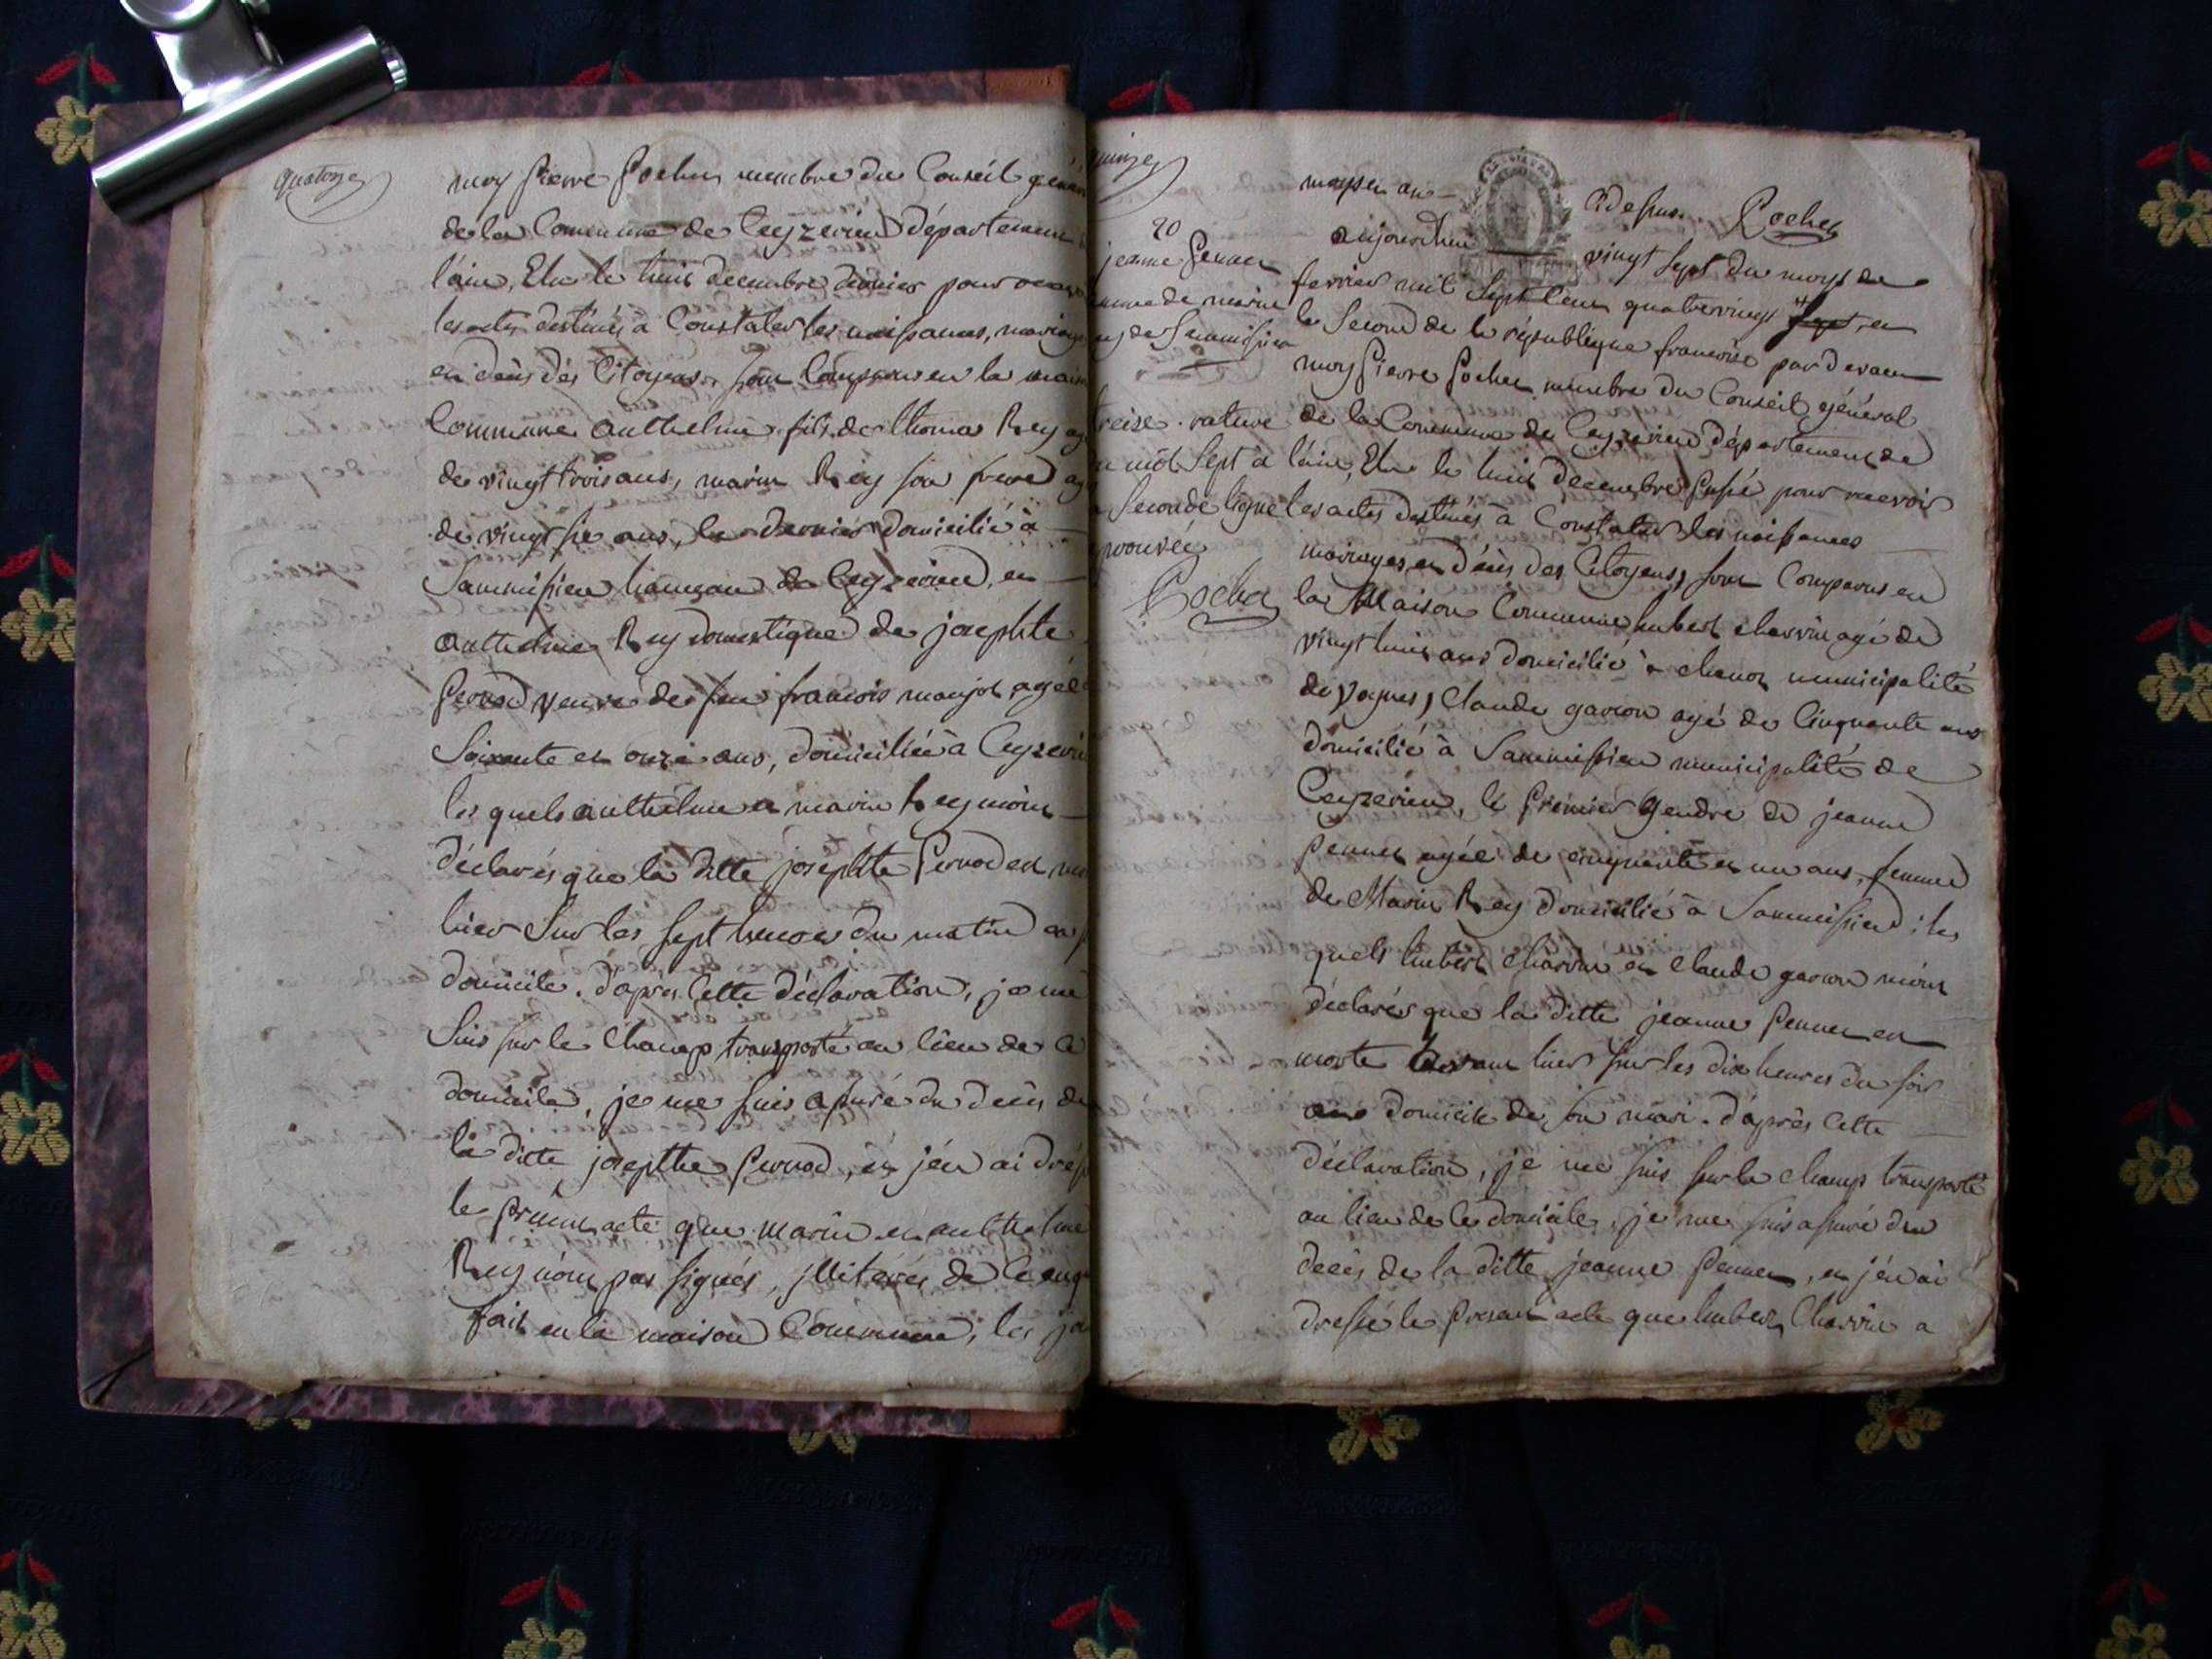 quatorze
moy pierre pochet membre du Conseil généra
de la Commune de Ceyzerieu département
l'ain, Elu le huit décembre dernier pour
les actes destinés à Constater les naissances, mariages
et décès des Citoyens, sont Comparus en la maison
Commune anthelme fils de thomas Rey ag
de vingt trois ans, marin Rey son frere ag
de vingt six ans, le dernier domicilié à
Sammissieu hameau de Ceyzerieu, et
anthelme Rey domestique de josephte
pernod veuve de feu francois monjot agée
Soixante et onze ans, domiciliée à Ceyzerieu
les quels anthelme et marin Rey m'ont
déclarés que la ditte josephte pernod est mo
hier Sur les Sept heures du matin en
domicile. d'après Cette déclaration, je me
Suis sur le Champ transporté au lieu de Ce
domicile, je me suis assuré du décès de
la ditte josephte pernod, et j'en ai drés
le présent acte que marin et anthelme
Rey n'ont pas signés, jllitérés de Ce enq
fait en la maison Commune, les jo
quinze
moys et an
Cidessus. Pochet
20
jeanne pennet
emme de marin
ey de Sammissieu
treise. rature
u mot Sept à
Seconde ligne
prouvée
Pochet
aujourd'hui vingt sept du moys de
fevrier mil Sept Cent quatrevingt Sept, et
le Second de la république francoise par devant
moy pierre pochet membre du Conseil général
de la Commune de Ceyzerieu département de
l'ain, Elu le huit decembre passé pour recevoir
les actes destinés à Constater les naissances
mariages et décès des Citoyens, sont Comparus en
la Maison Commune humbert charvin agé de
vingt huit ans domicilié à municipalité
de Claude gavion agé de Cinquante ans
domicilié à Sammissieu municipalité de
Ceyzerieu, le premier gendre de jeanne
pennet agée de cinquante et un ans, femme
de Marin Rey domiciliés à Sammissieu; les
quels humbert charvin et Claude gavion m'ont
déclarés que la ditte jeanne pennet est
morte avant hier sur les dix heures du soir
au domicile de son mari. d'après Cette
déclaration, je me suis sur le champ transporté
au lieu de Ce domicile, je me suis assuré du
décès de la ditte jeanne pennet, et j'en ai
dressé le present acte que humbert Charvin a